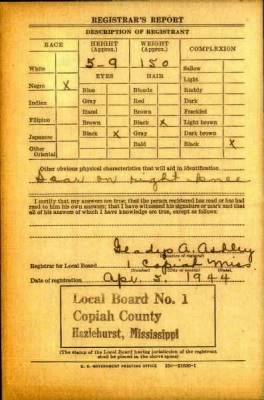 REGISTRAR'S REPORT
DESCRIPTION OF REGISTRANT
RACE HEIGHT (Approx.) WEIGHT (Approx.) COMPLEXION
White 5-9 150 Sallow
EYES HAIR Light
Negro X Blue Blonde Ruddy
Indian Gray Red Dark
Hazel Brown Freckled
Filipino Brown Black X Light brown
Japanese Black X Gray Dark brown
Other Oriental Bald Black X
Other obvious physical characteristics that will aid in identification
Scar on right knee
I certify that my answers are true; that the person registered has read or has had
read to him his own answers; that I have witnessed his signature or mark and that
all of his answers of which I have knowledge are true, except as follows:
Gladys A. Ashley
(Signature of registrar)
Registrar for Local Board 1 Copiah Miss.
(Number) (City or county) (State)
Date of registration Apr. 5, 1944
Local Board No. 1
Copiah County
Hazlehurst, Mississippi
(The stamp of the Local Board having jurisdiction of the registrant
shall be placed in the above space)
U. S. GOVERNMENT PRINTING OFFICE